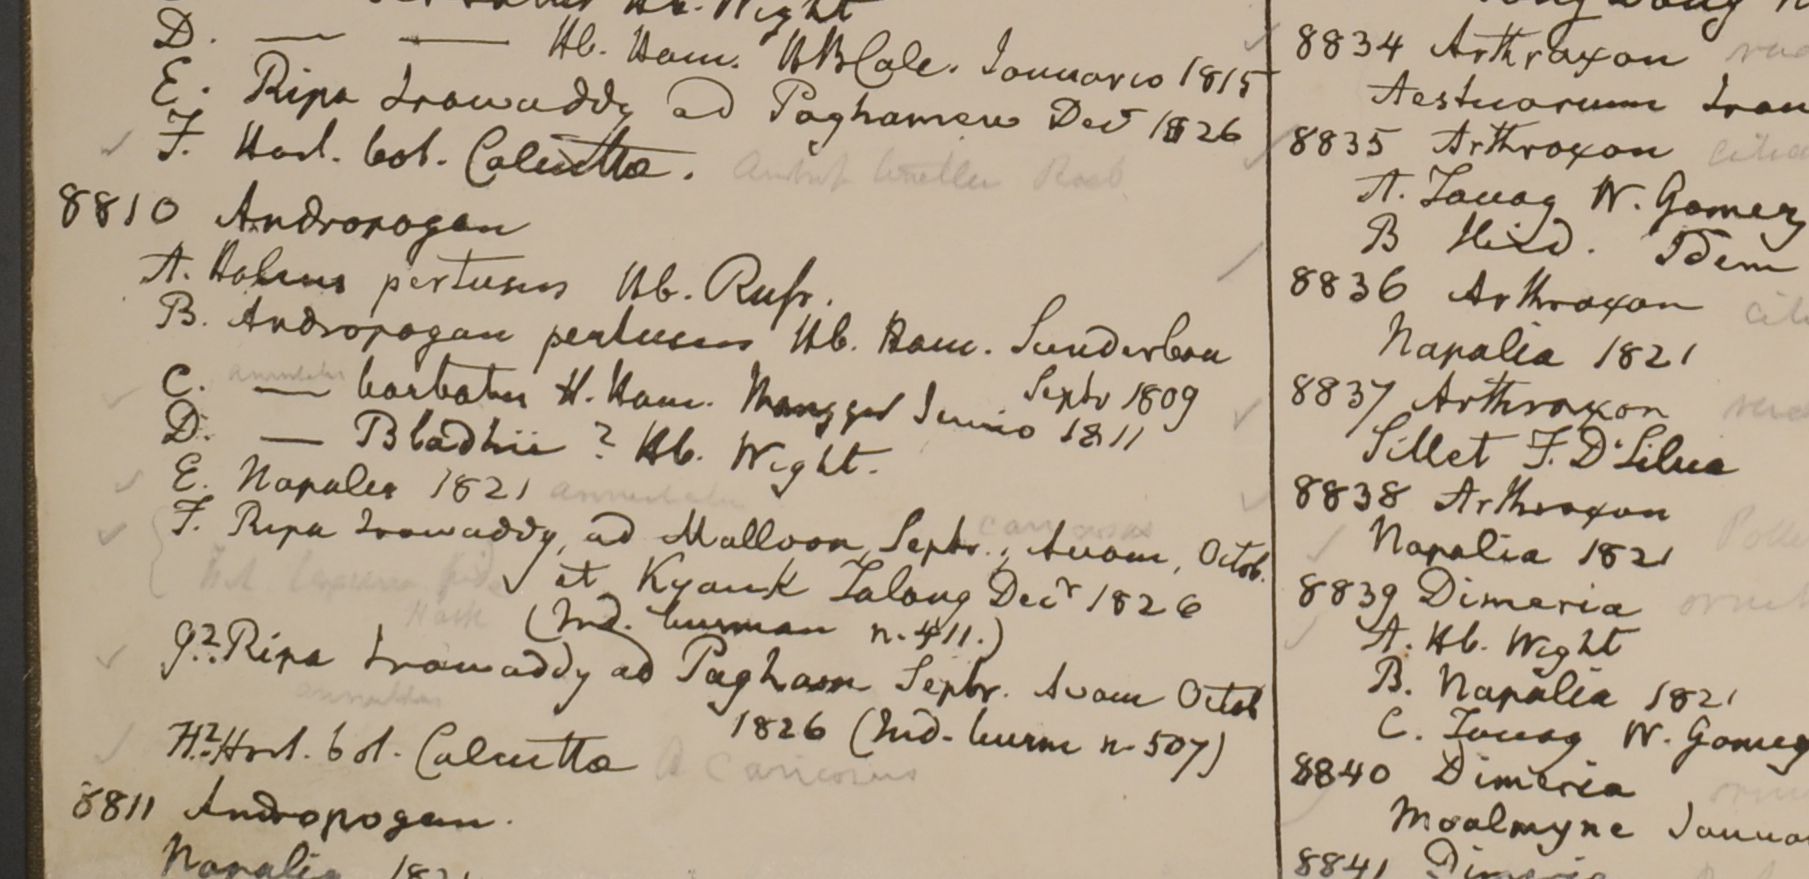 Hb. Wight
D. — — Hb. Ham. HBCalc. Januario 1815
E. Ripa Irawaddy ad Paghamew Decr 1826
F. Hort. bot. Calcutta. Roxb
8810 Andropogon
A. Holcus pertusus Hb. Russ.
B. Andropogon pertusus Hb. Ham. Sunderbon
Septr 1809
C. — barbatus H. Ham. Junio 1811
annulatus
D. — Bladhii? Hb. Wight.
E. Napalia 1821 annulatus
F. Ripa Irawaddy, ad Malloon, Septr., Avam, Octob.
et Kyauk Talong Decr 1826
Hack
(Ind. burman n. 411.)
G?. Ripa Irawaddy ad Pagham Septr. Avam Octob
annulatus
1826 (Ind. burm n. 507)
H?. Hort. bot. Calcutta A caricosus
8811 Andropogon.
Napalia 1821
8834 Arthraxon
Aestuarium Iraw
8835 Arthraxon cilia
A. Tavoy W. Gomez
B Herb. Idem
8836 Arthraxon cili
Napalia 1821
8837 Arthraxon
Sillet F. D'Silva
8838 Arthraxon
Napalia 1821
8839 Dimeria ornith
A. Hb. Wight
B. Napalia 1821
C. Tavoy W. Gomez
8840 Dimeria
Moalmyne Janua
8841 Dimeria